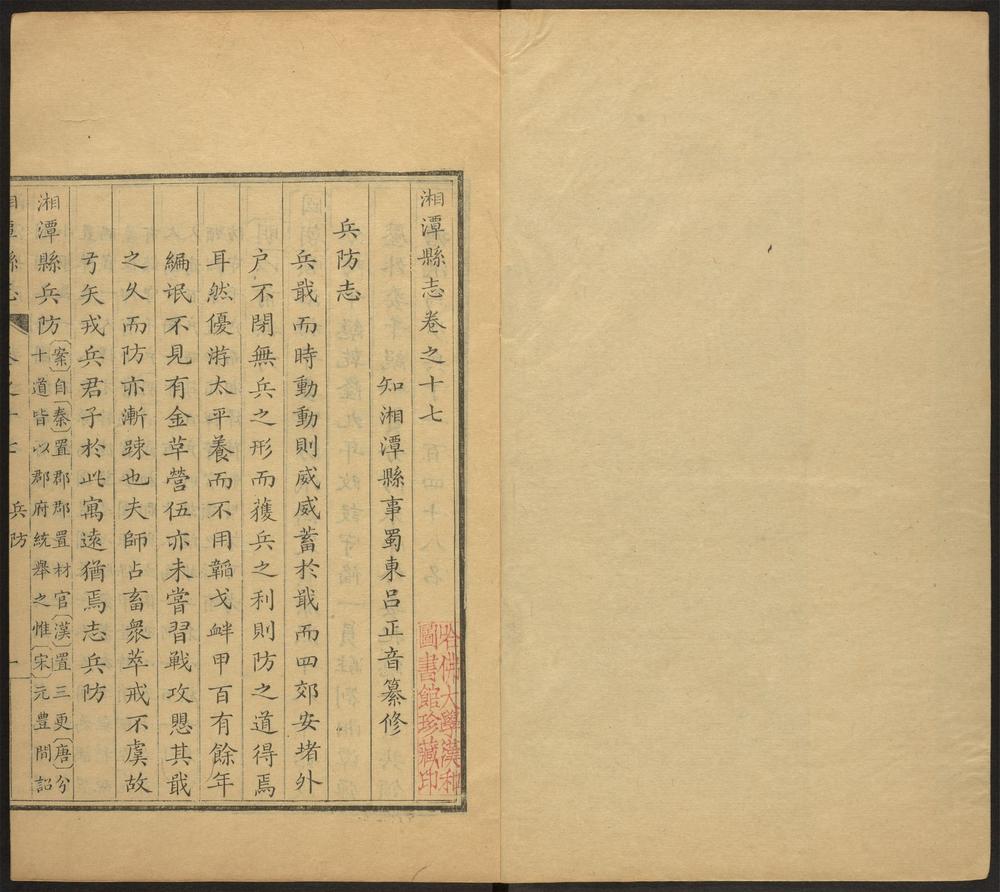 湘潭縣志卷之十七
知湘潭縣事蜀東呂正音纂修
兵防志
兵戢而時動動則威威蓄於戢而四郊安堵外
户不閉無兵之形而獲兵之利則防之道得焉
耳然優游太平養而不用韜戈衅甲百有餘年
編氓不見有金革營伍亦未嘗習戰攻愳其戢
之久而防亦漸踈也夫師占畜衆萃戒不虞故
弓矢戎兵君子於此寓遠猶焉志兵防
湘潭縣兵防
案自秦置郡郡置材官漢置三更唐分
十道皆以郡府統舉之惟宋元豊間詔
兵防
一
哈佛大學漢和
圖書館珍藏印